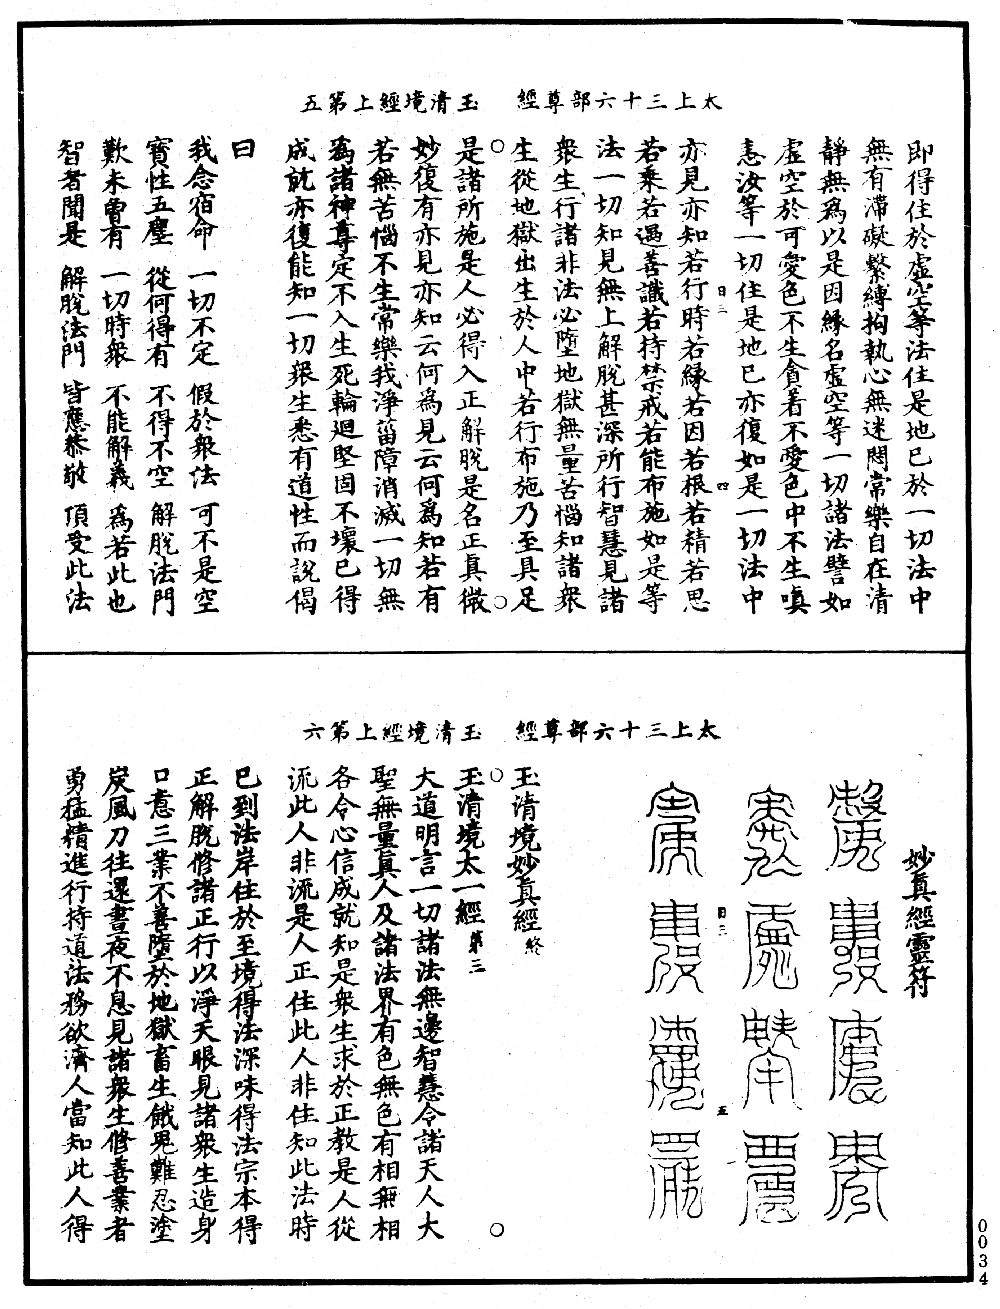 太上三十六部尊經　玉清境經上第五
即得住於虛空等法住是地已於一切法中
無有滯礙繫縛拘執心無迷悶常樂自在清
靜無爲以是因緣名虛空等一切諸法譬如
虛空於可愛色不生貪着不愛色中不生嗔
恚汝等一切住是地已亦復如是一切法中
日三　四
亦見亦知若行時若緣若因若根若精若思
若乘若遇善識若持禁戒若能布施如是等
法一切知見無上解脫甚深所行智慧見諸
衆生行諸非法必墮地獄無量苦惱知諸衆
生從地獄出生於人中若行布施乃至具足
是諸所施是人必得入正解脫是名正真微
妙復有亦見亦知云何爲見云何爲知若有
若無苦惱不生常樂我淨菑障消滅一切無
爲諸神尊定不入生死輪廻堅固不壞已得
成就亦復能知一切衆生悉有道性而說偈
曰
我念宿命　一切不定　假於衆法　可不是空
寶性五塵　從何得有　不得不空　解脫法門
歎未曾有　一切時衆　不能解義　爲若此也
智者聞是　解脫法門　皆應恭敬　頂受此法
太上三十六部尊經　玉清境經上第六
妙真經靈符
日三　五
玉清境妙真經終
玉清境太一經第三
大道明言一切諸法無邊智慧令諸天人大
聖無量真人及諸法界有色無色有相無相
各令心信成就知是衆生求於正教是人從
流此人非流是人正住此人非住知此法時
已到法岸住於至境得法深味得法宗本得
正解脫修諸正行以淨天眼見諸衆生造身
口意三業不善墮於地獄畜生餓鬼難忍塗
炭風刀往還晝夜不息見諸衆生修善業者
勇猛精進行持道法務欲濟人當知此人得
0034